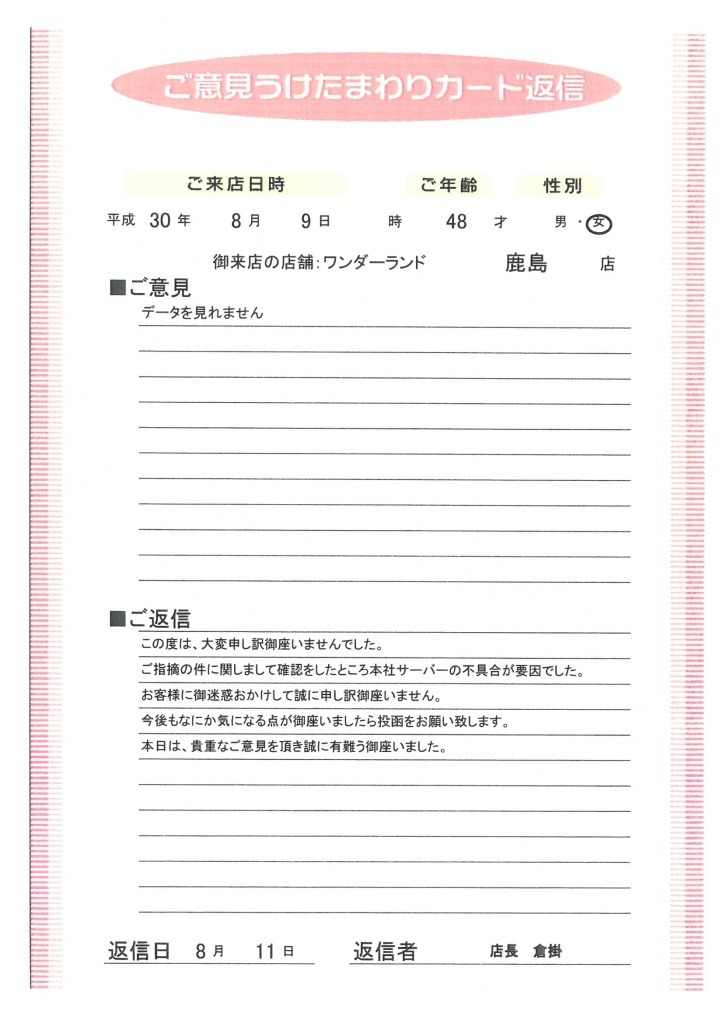 ご意見うけたまわりカード返信
ご来店日時 ご年齢 性別
平成 30 年 8 月 9 日 時 48 才 男・女
御来店の店舗：ワンダーランド 鹿島 店
■ご意見
データを見れません
■ご返信
この度は、大変申し訳御座いませんでした。
ご指摘の件に関しまして確認をしたところ本社サーバーの不具合が要因でした。
お客様に御迷惑おかけして誠に申し訳御座いません。
今後もなにか気になる点が御座いましたら投函をお願い致します。
本日は、貴重なご意見を頂き誠に有難う御座いました。
返信日 8 月 11 日 返信者 店長 倉掛